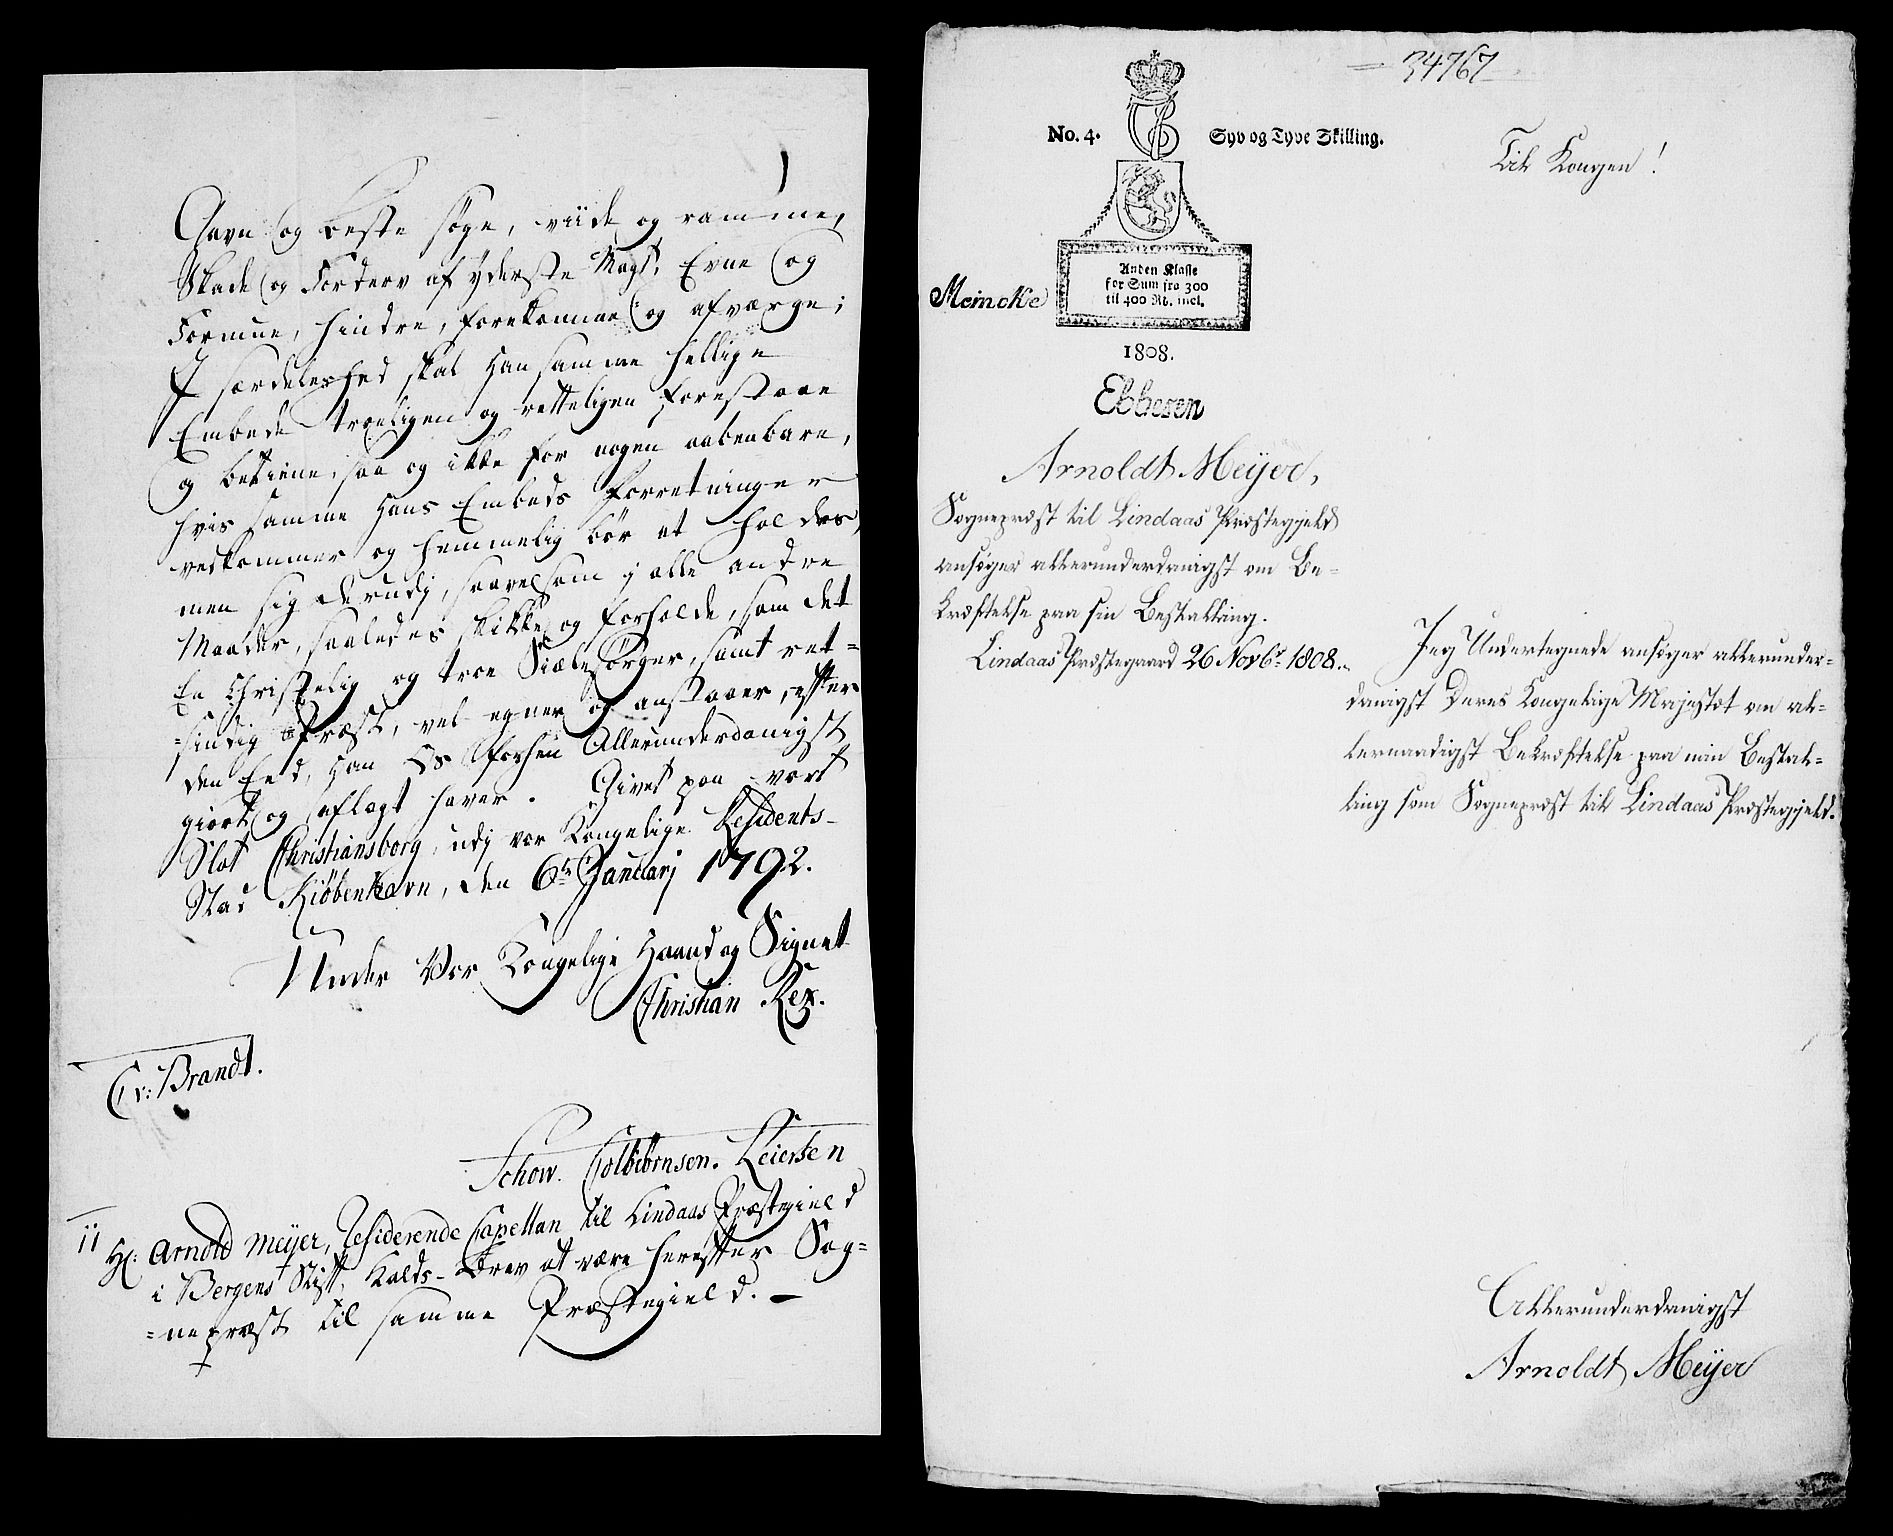 Gavn og beste søge, viide og ramme,
Skade og Forderv af yderste Magt, Evne og
Formue, hindre, forekomme og afværge;
I særdeleshed skal Han samme hellige
Embede troeligen og retteligen forestaae
og betiene, saa og ikke for nogen aabenbare,
hvis samme Hans Embeds Forretninger
vedkommer og hemmelig bør at holdes,
men sig derudj, saavelsom j alle andre
Maader, saaledes skikke og forholde, som det
En Christelig og troe Siælesørger, samt ret-
-sindig Præst, vel egner og anstaaer, efter
den Eed, Han Os forhen Allerunderdanigst
giort og aflagt haver. Givet paa vort
Slot Christiansborg, udj vor Kongelige Residents-
Stad Kiöbenhavn, den 6te Januarj 1792.
Under Vor Kongelige Haand og Signet
Christian Rex.
Cr: Brandt.
Schow. Colbiörnsen. Leiersen
11
Hr: Arnold Meÿer, Residerende Capellan til Lindaas Præstegield
i Bergens Stift, Kalds-Brev at være herefter Sog-
-nepræst til samme Præstegield. -
34767
No. 4.
Syv og Tyve Skilling.
Til Kongen!
Anden Klasse
for Sum fra 300
til 400 Rd. incl.
Meincke
1808.
Ebbesen
Arnoldt Meÿer,
Sognepræst til Lindaas Præstegjeld
ansøger allerunderdanigst om Be-
kræftelse paa sin Bestalling.
Lindaas Præstegaard 26 Novbr 1808.
Jeg Undertegnede ansøger allerunder-
danigst Deres Kongelige Majestæt om al-
lernaadigst Bekræftelse paa min Bestal-
ling som Sognepræst til Lindaas Præstegjeld.
Allerunderdanigst
Arnoldt Meÿer